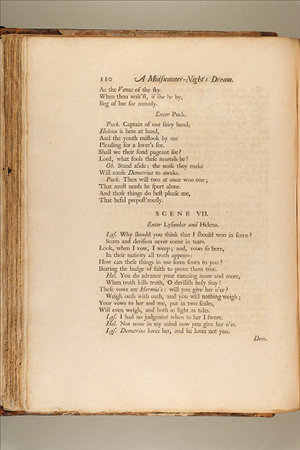 110 A Midsummer-Night's Dream.
As the Venus of the sky.
When thou wak'st, if she be by,
Beg of her for remedy.
Enter Puck.
Puck. Captain of our fairy band,
Helena is here at hand,
And the youth mistook by me
Pleading for a lover's fee.
Shall we their fond pageant see?
Lord, what fools these mortals be!
Ob. Stand aside: the noise they make
Will cause Demetrius to awake.
Puck. Then will two at once woo one;
That must needs be sport alone.
And those things do best please me,
That befal prepost'rously.
SCENE VII.
Enter Lysander and Helena.
Lys. Why should you think that I should woo in scorn?
Scorn and derision never come in tears.
Look, when I vow, I weep; and, vows so born,
In their nativity all truth appears:
How can these things in me seem scorn to you?
Bearing the badge of faith to prove them true.
Hel. You do advance your cunning more and more,
When truth kills truth, O devilish holy fray!
These vows are Hermia's: will you give her o'er?
Weigh oath with oath, and you will nothing weigh;
Your vows to her and me, put in two scales,
Will even weigh, and both as light as tales.
Lys. I had no judgment when to her I swore.
Hel. Nor none in my mind now you give her o'er.
Lys. Demetrius loves her, and he loves not you.
Dem.